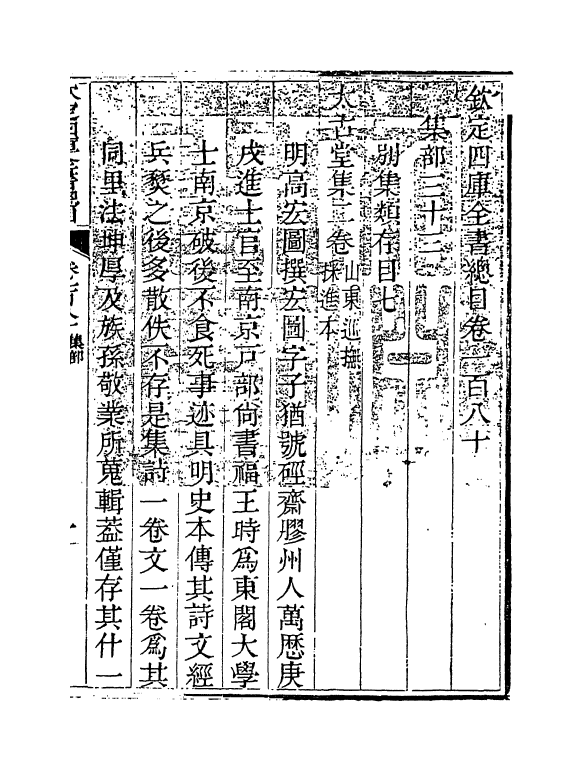 欽定四庫全書總目卷一百八十
集部三十三
別集類存目七
太古堂集二卷山東巡撫採進本
明高宏圖撰宏圖字子猶號硜齋膠州人萬歷庚
戌進士官至南京戸部尚書福王時爲東閣大學
士南京破後不食死事迹具明史本傳其詩文經
兵燹之後多散佚不存是集詩一卷文一卷爲其
同里法坤厚及族孫敬業所蒐輯葢僅存其什一
欽定四庫全書總目 集部 一